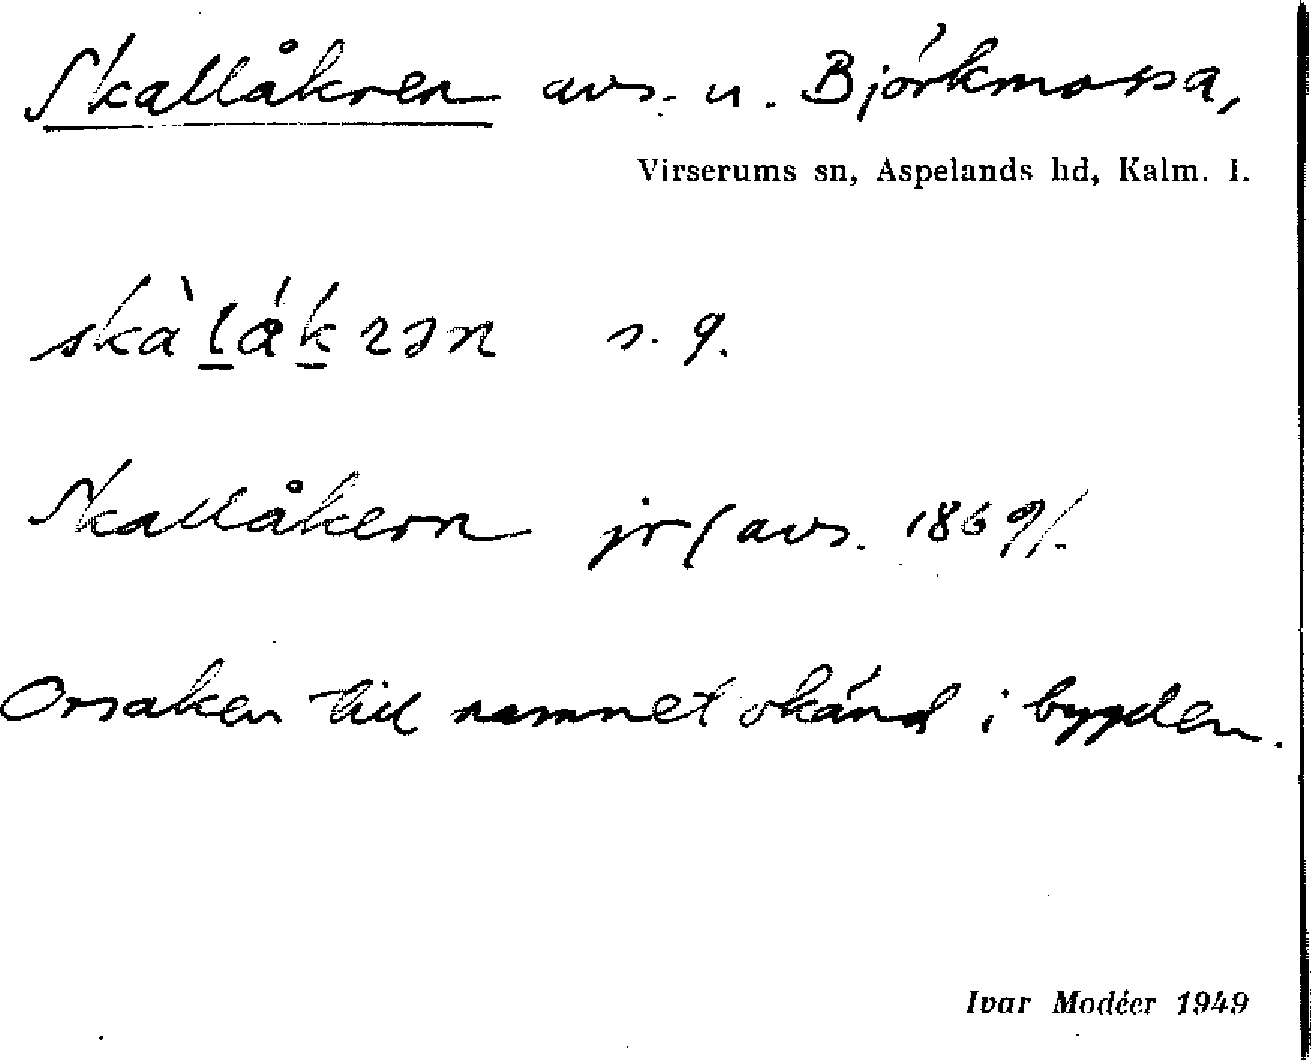 Skallåkren avs. u. Björkmossa,
Virserums sn, Aspelands hd, Kalm. l.
skàl̠ák̠rən s. g.
Skallåkern jr (avs. 1869).
Orsaken till namnet okänd i bygden.
Ivar Modéer 1949